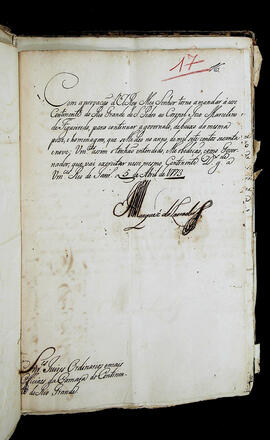 17
Com a preposição d'ElRey Meu Senhor torna a mandar á esse
Continente do Rio Grande de S. Pedro ao Coronel Joze Marcelino
de Figueiredo, para continuar a governalo, debaixo da mesma
posse, e homenagem, que se lhe deo no anno de mil sete centos secenta
e nove; Vm.ces assim o tenhão entendido, e lhe obedeção, como Gover-
nador, que vai a exercitar nesse mesmo Continente. D.s g.e a
Vm.ces Rio de Janr.o 5 de Abril de 1773
Marquez do Lavradio
Snr.es Juizes Ordinarios e mais
Officiaes da Camara do Continen-
te do Rio Grande